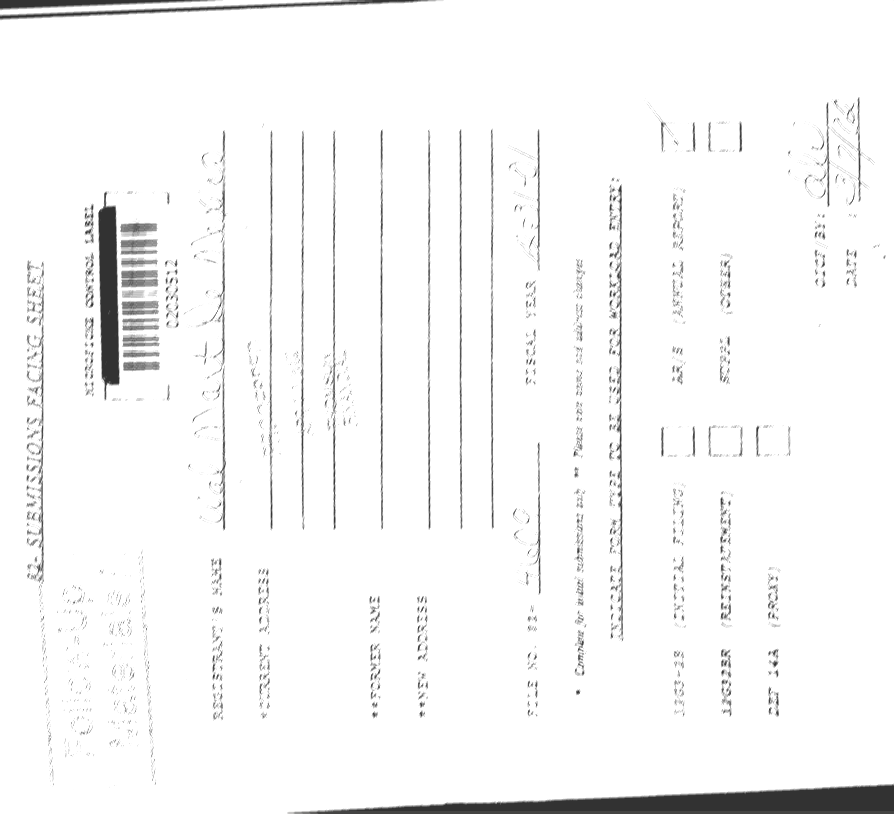 82- SUBMISSIONS FACING SHEET
Follow-Up
Materials
MICROFICHE CONTROL LABEL
02030512
REGISTRANT'S NAME Wal Mart De Mexico
*CURRENT ADDRESS
PROCESSED
THOMSON
FINANCIAL
**FORMER NAME
**NEW ADDRESS
FILE NO. 82- 4609 FISCAL YEAR 12-31-01
* Complete for initial submissions only ** Please note name and address changes
INDICATE FORM TYPE TO BE USED FOR WORKLOAD ENTRY:
12G3-2B (INITIAL FILING) AR/S (ANNUAL REPORT)
12G32BR (REINSTATEMENT) SUPPL (OTHER)
DEF 14A (PROXY)
OICF/BY:
DATE :